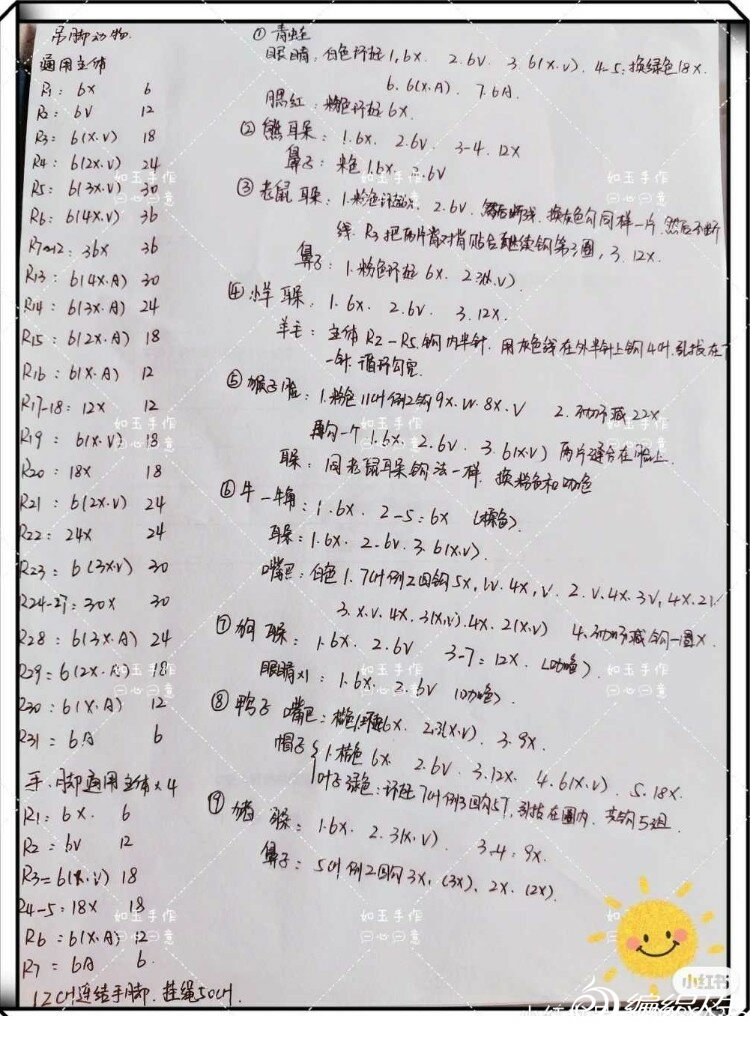 吊脚动物
通用主体
R1: 6X 6
R2: 6V 12
R3: 6(X.V) 18
R4: 6(2X.V) 24
R5: 6(3X.V) 30
R6: 6(4X.V) 36
R7~12: 36X 36
R13: 6(4X.A) 30
R14: 6(3X.A) 24
R15: 6(2X.A) 18
R16: 6(X.A) 12
R17-18: 12X 12
R19: 6(X.V) 18
R20: 18X 18
R21: 6(2X.V) 24
R22: 24X 24
R23: 6(3X.V) 30
R24-27: 30X 30
R28: 6(3X.A) 24
R29: 6(2X.A) 18
R30: 6(X.A) 12
R31: 6A 6
手、脚通用主体×4
R1: 6X. 6
R2: 6V 12
R3: 6(X.V) 18
R4-5: 18X 18
R6: 6(X.A) 12
R7: 6A 6
12CH连结手脚.挂绳50CH.
① 青蛙
眼睛: 白色环起1.6X. 2.6V. 3.6(X.V). 4-5:换绿色18X.
6.6(X.A). 7.6A.
腮红: 粉色环起6X.
② 熊 耳朵: 1.6X. 2.6V. 3-4.12X
鼻子: 米色 1.6X. 2.6V
③ 老鼠 耳朵: 1.粉色环起6X. 2.6V. 然后断线.换灰色勾同样一片.然后不断
线. R3把两片背对背贴合继续钩第3圈, 3.12X.
鼻子: 1.粉色环起6X. 2.3(X.V).
④ 小羊 耳朵: 1.6X. 2.6V. 3.12X.
羊毛: 主体R2-R5钩内半针.用灰色线在外半针上钩4CH.引拔在下
一针.循环勾完.
⑤ 猴子 脸: 1.粉色11CH倒2钩9X.W.8X.V 2.不加不减22X
再勾一个1.6X. 2.6V. 3.6(X.V) 两片缝合在脸上.
耳朵: 同老鼠耳朵钩法一样.换粉色和咖色
⑥ 牛 一牛角: 1.6X. 2-5:6X (棕色).
耳朵: 1.6X. 2.6V. 3.6(X.V).
嘴巴: 白色 1.7CH倒2回钩5X,W.4X,V. 2.V.4X.3V,4X.2V
3.X.V.4X.3(X.V).4X.2(X.V) 4.不加不减钩一圈X.
⑦ 狗 耳朵: 1.6X. 2.6V 3-7:12X.(咖色)
眼睛×1: 1.6X. 2.6V (咖色)
⑧ 鸭子 嘴巴: 橘色环起6X. 2.3(X.V). 3.9X.
帽子 1.橘色 6X. 2.6V. 3.12X. 4.6(X.V). 5.18X.
叶子绿色: 环起7CH倒3回勾5T,引拔在圈内.共钩5组.
⑨ 猪 耳朵: 1.6X. 2.3(X.V). 3-4:9X.
鼻子: 5CH倒2回勾3X,(3X)、2X.(2X).
如玉手作
一心一意
小红书